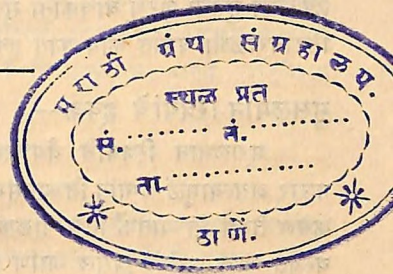 मराठी ग्रंथ संग्रहालय.
स्थळ प्रत
सं.......... नं..........
ता....................
ठाणें.